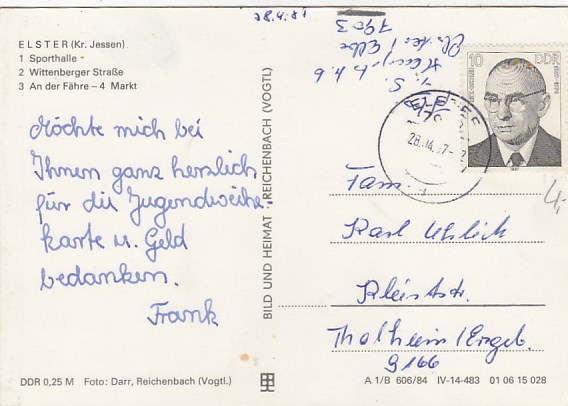 28.4.87
ELSTER (Kr. Jessen)
1 Sporthalle
2 Wittenberger Straße
3 An der Fähre – 4 Markt
Möchte mich bei
Ihnen ganz herzlich
für die Jugendweihe-
karte u. Geld
bedanken.
Frank
DDR 0,25 M Foto: Darr, Reichenbach (Vogtl.)
BILD UND HEIMAT REICHENBACH (VOGTL)
7903
Elster / Elbe
10 DDR
28.-4.87
4,-
Fam.
Karl Uhlich
Kleiststr.
Thalheim/Erzgeb.
9166
A 1/B 606/84 IV-14-483 01 06 15 028